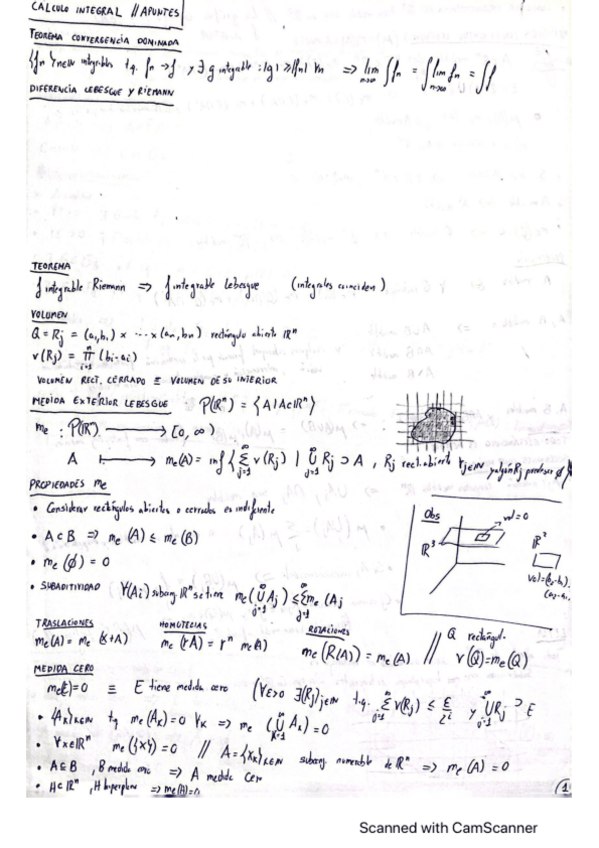 CALCULO INTEGRAL // APUNTES
TEOREMA CONVERGENCIA DOMINADA
{fn}n∈ℕ integrables t.q. fn → f y ∃ g integrable : |g| ≥ |fn| ∀n ⇒ lim n→∞ ∫fn = ∫ lim n→∞ fn = ∫f
DIFERENCIA LEBESGUE Y RIEMANN
TEOREMA
f integrable Riemann ⇒ f integrable Lebesgue (integrales coinciden)
VOLUMEN
Q = Rj = (a1,b1) × ... × (an,bn) rectángulo abierto ℝⁿ
v(Rj) = ∏ i=1 n (bi-ai)
VOLUMEN RECT. CERRADO ≡ VOLUMEN DE SU INTERIOR
MEDIDA EXTERIOR LEBESGUE P(ℝⁿ) = {A | A⊂ℝⁿ}
me : P(ℝⁿ) → [0, ∞)
A ↦ me(A) = inf { ∑ j=1 ∞ v(Rj) | ∪ j=1 ∞ Rj ⊃ A , Rj rect. abierto ∀j∈ℕ y algún Rj puede ser ∅ }
PROPIEDADES me
• Considerar rectángulos abiertos o cerrados es indiferente
• A⊂B ⇒ me(A) ≤ me(B)
• me(∅) = 0
• SUBADITIVIDAD ∀(Ai) subconj ℝⁿ se tiene me(∪ j=1 ∞ Aj) ≤ ∑ j=1 ∞ me(Aj
Obs
vol=0
ℝ³
ℝ²
TRASLACIONES HOMOTECIAS ROTACIONES
me(A) = me(x+A) me(rA) = rⁿ me(A) me(R(A)) = me(A) // Q rectángul. v(Q)=me(Q)
MEDIDA CERO
me(E)=0 ≡ E tiene medida cero (∀ε>0 ∃(Rj)j∈ℕ t.q. ∑ j=1 ∞ v(Rj) ≤ ε/2ⁱ y ∪ j=1 ∞ Rj ⊃ E
• {Ak}k∈ℕ tq me(Ak)=0 ∀k ⇒ me(∪ k=1 ∞ Ak) = 0
• ∀x∈ℝⁿ me({x}) = 0 // A = {xk}k∈ℕ subconj numerable de ℝⁿ ⇒ me(A) = 0
• A⊂B , B medida cero ⇒ A medida cero
• H⊂ℝⁿ, H hiperplano ⇒ me(H)=0
(1
Scanned with CamScanner